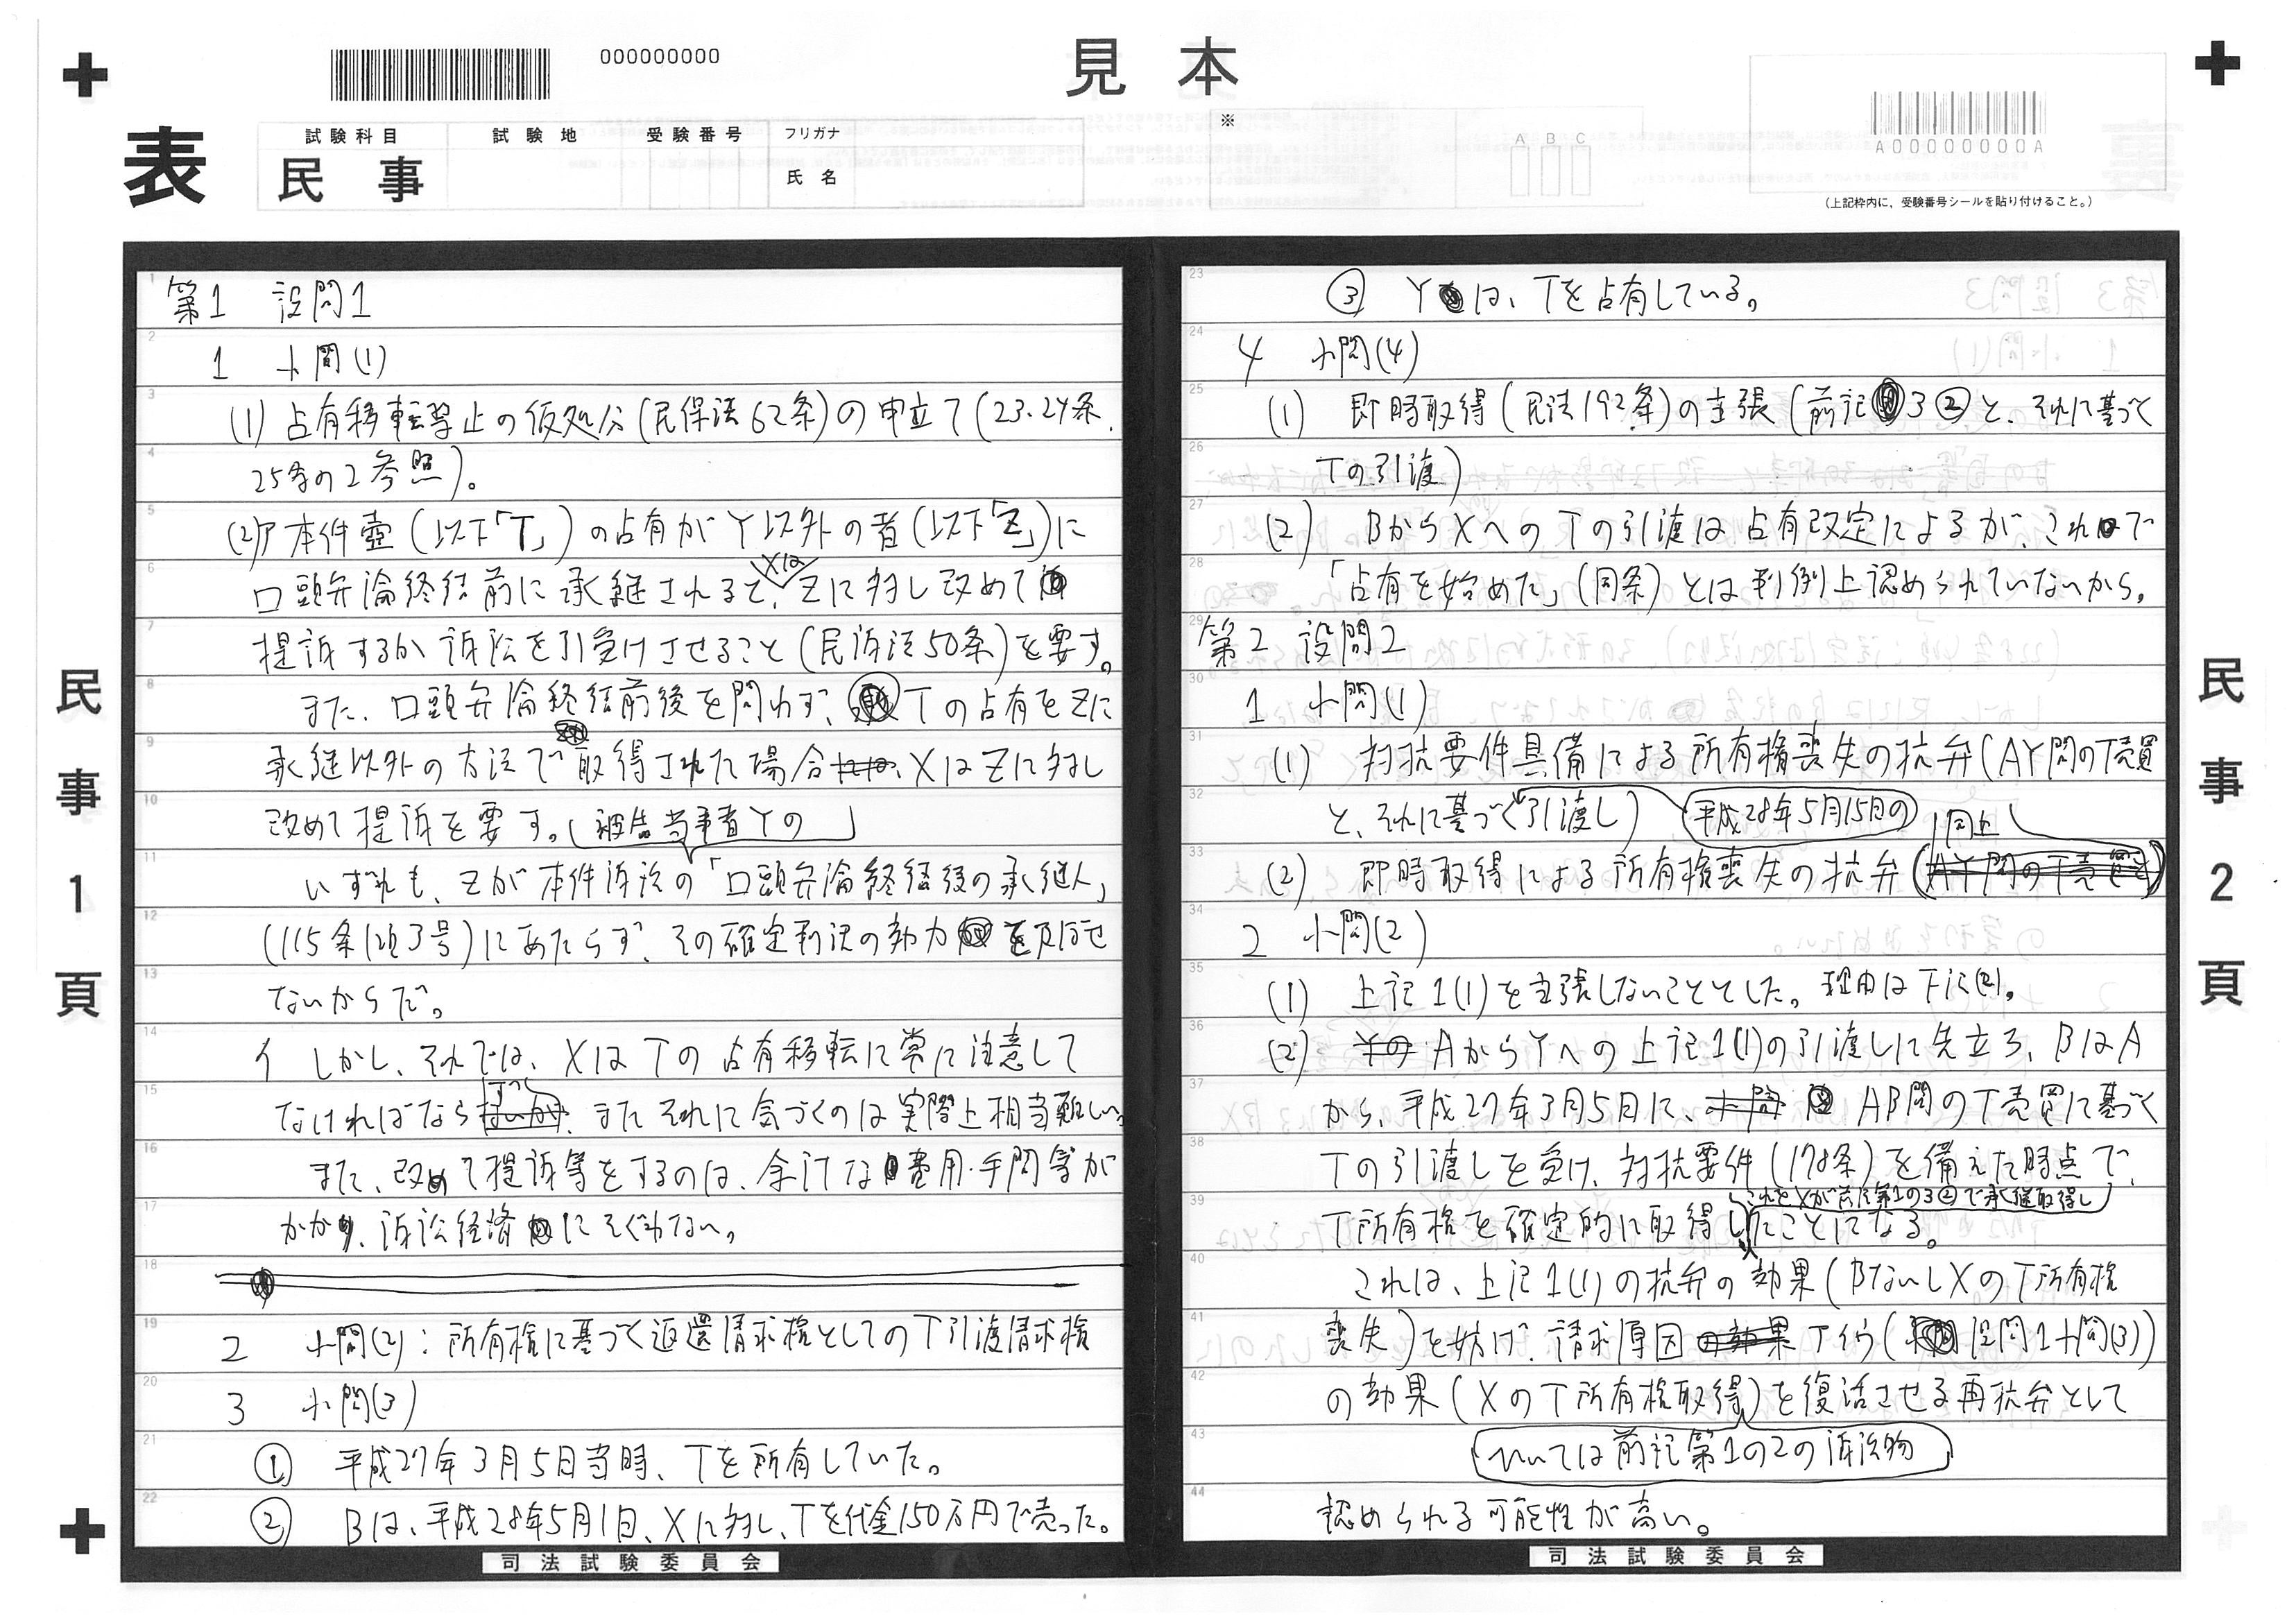 見 本
000000000
表
試験科目
民 事
試 験 地
受 験 番 号
フリガナ
氏 名
※
A B C
A00000000A
(上記枠内に、受験番号シールを貼り付けること。)
民事1頁
1 第1 設問1
2 1 小問(1)
3 (1) 占有移転禁止の仮処分(民保法62条)の申立て(23.24条.
4 25条の2参照)。
5 (2)ア 本件壺(以下「T」)の占有がY以外の者(以下「Z」)に
6 口頭弁論終結前に承継されると、XはZに対し改めて
7 提訴するか訴訟を引受けさせること(民訴法50条)を要す。
8 また、口頭弁論終結前後を問わず、Tの占有をZに
9 承継以外の方法で取得された場合、XはZに対し
10 改めて提訴を要す。
11 いずれも、Zが本件訴訟の被告当事者Yの「口頭弁論終結後の承継人」
12 (115条1項3号)にあたらず、その確定判決の効力を及ぼせ
13 ないからだ。
14 イ しかし、それでは、XはTの占有移転に常に注意して
15 なければならず、またそれに気づくのは実際上相当難しい。
16 また、改めて提訴等をするのは、余計な費用・手間等が
17 かかり、訴訟経済にそぐわない。
18
19 2 小問(2):所有権に基づく返還請求権としてのT引渡請求権
20 3 小問(3)
21 ① 平成27年3月5日当時、Tを所有していた。
22 ② Bは、平成28年5月1日、Xに対し、Tを代金150万円で売った。
司法試験委員会
23 ③ Yは、Tを占有している。
24 4 小問(4)
25 (1) 即時取得(民法192条)の主張(前記3②と、それに基づく
26 Tの引渡)
27 (2) BからXへのTの引渡は占有改定によるが、これで
28 「占有を始めた」(同条)とは判例上認められていないから。
29 第2 設問2
30 1 小問(1)
31 (1) 対抗要件具備による所有権喪失の抗弁(AY間のT売買
32 と、それに基づく平成28年5月15日の引渡し)
33 (2) 即時取得による所有権喪失の抗弁(同上)
34 2 小問(2)
35 (1) 上記1(1)を主張しないこととした。理由は下記(2)。
36 (2) AからYへの上記1(1)の引渡しに先立ち、BはA
37 から、平成27年3月5日に、AB間のT売買に基づく
38 Tの引渡しを受け、対抗要件(178条)を備えた時点で、
39 T所有権を確定的に取得し、これをXが前記第1の3②で承継取得したことになる。
40 これは、上記1(1)の抗弁の効果(BないしXのT所有権
41 喪失)を妨げ、請求原因(設問1小問(3))
42 の効果(XのT所有権取得、
43 ひいては前記第1の2の訴訟物)を復活させる再抗弁として
44 認められる可能性が高い。
司法試験委員会
民事2頁